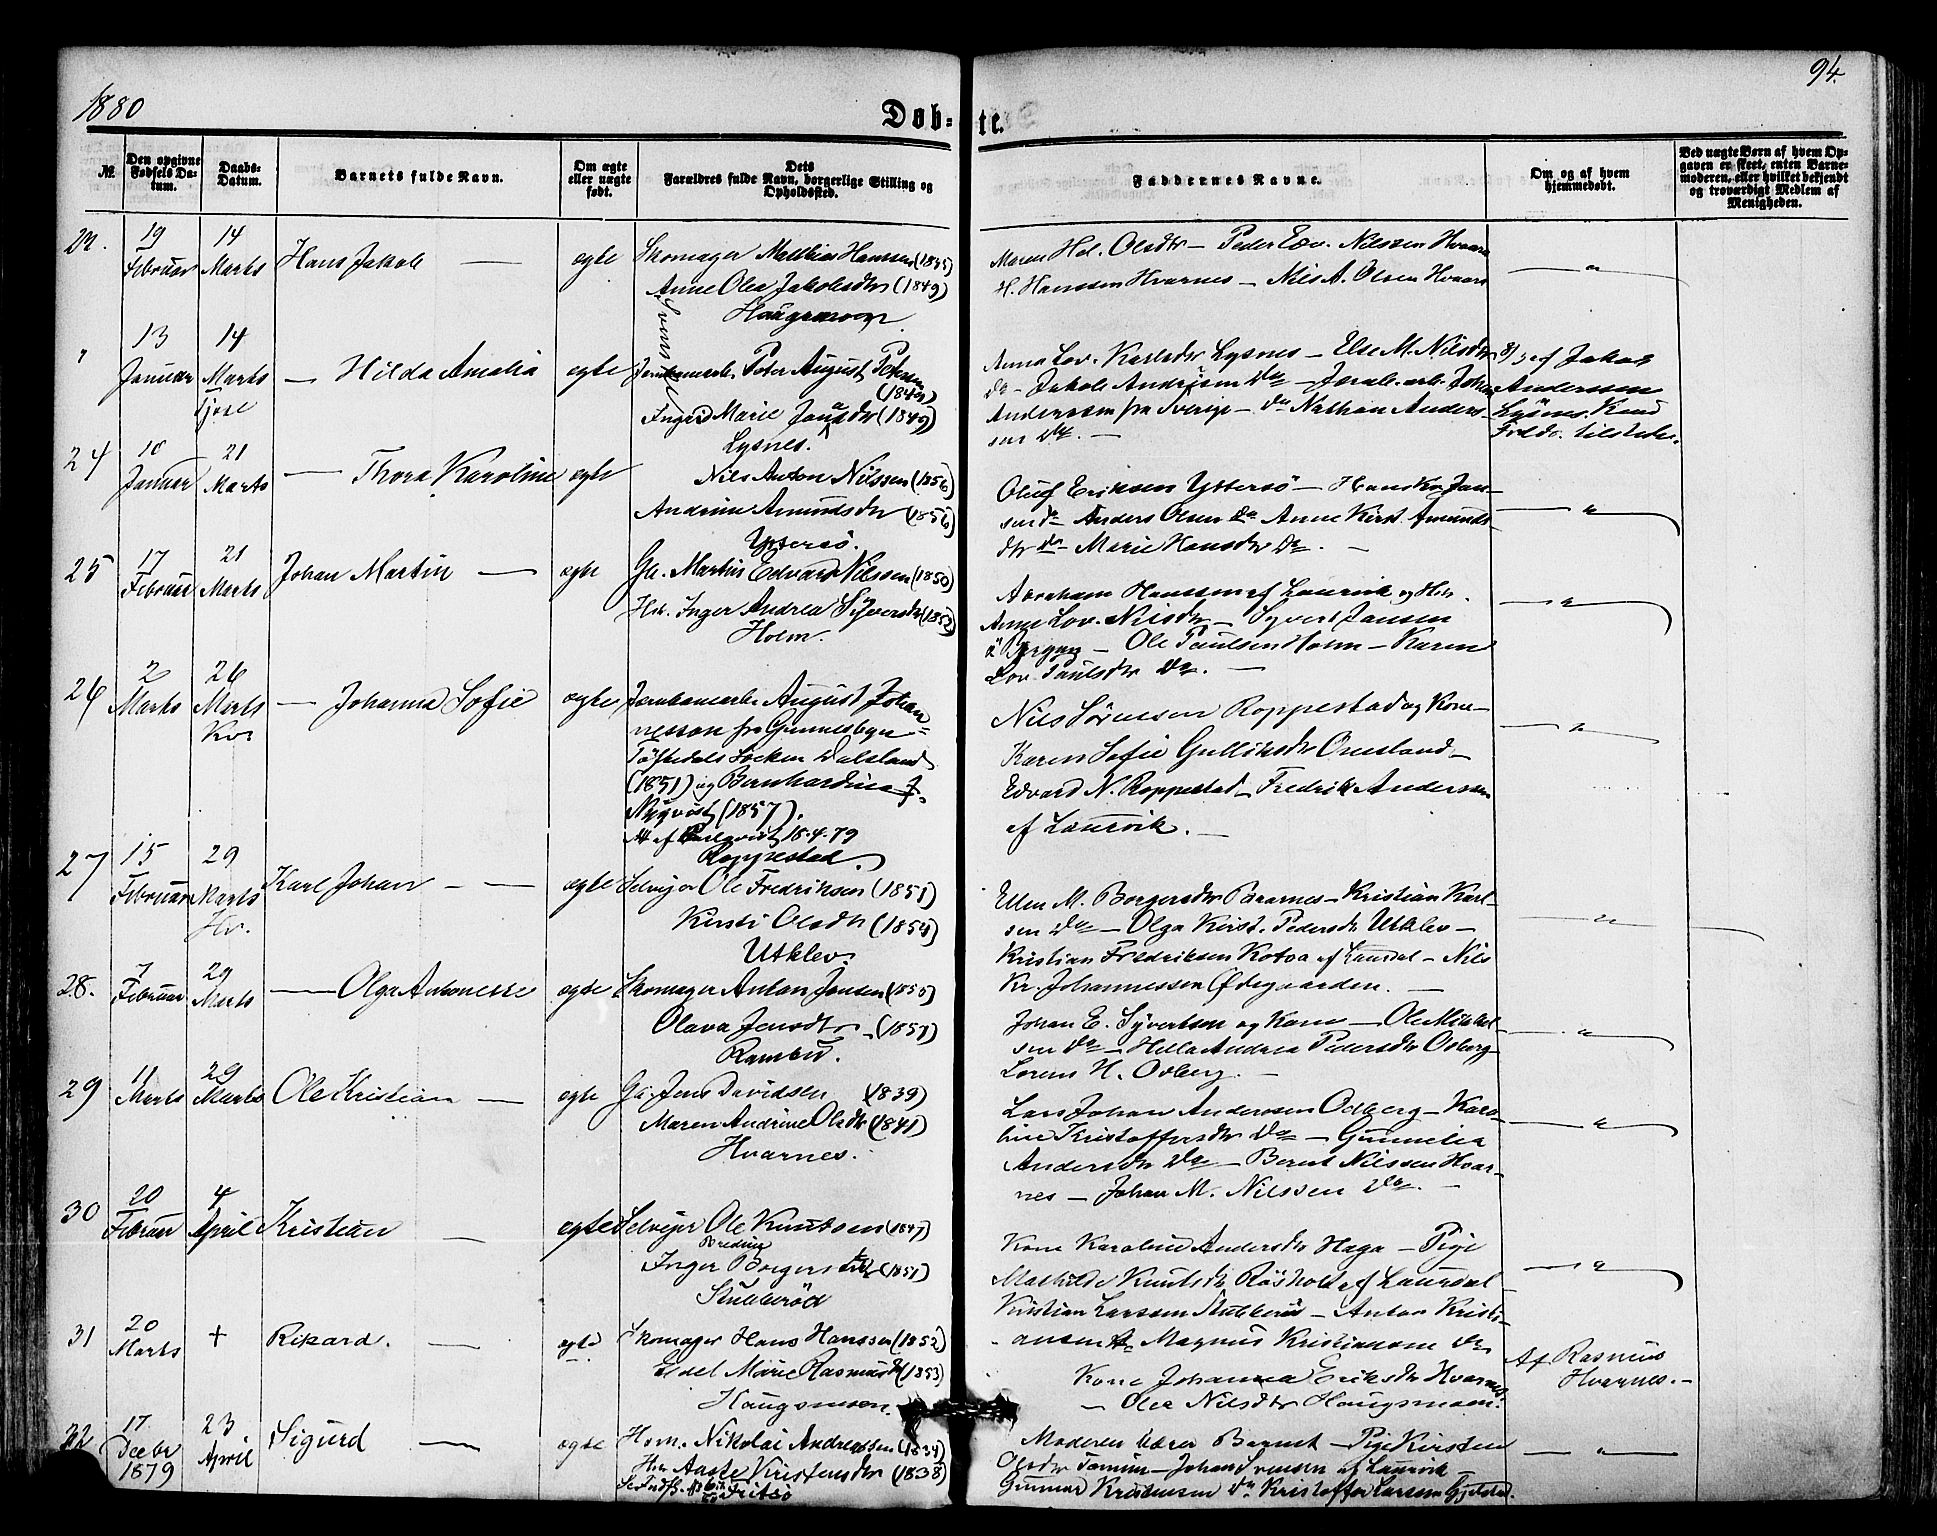 1880
Døb-
te.
94.
№
Den opgivne Fødsels Da-tum.
Daabs-Datum.
Barnets fulde Navn.
Om ægte eller uægte født.
Dets Forældres fulde Navn, borgerlige Stilling og Opholdssted.
Faddernes Navne.
Om og af hvem hjemmedøbt.
Ved uægte Børn af hvem Op-gaven er skeet, enten Barne-moderen, eller hvilket bekjendt og troværdigt Medlem af Menigheden.
19 Februar
14 Marts
Hans Jakob —
ægte
Skomager Mathias Hanssen
Anne Olea Jakobsdtr (1849)
Maren Hel. Olsdtr — Peder Edv. Nilssen
H. Hanssen Hvarnes — Nils A. Olsen
— " —
13 Januar
14 Marts Tjose
— Hilda Amalia
ægte
Jernbanearb. Peter August
Ingrid Marie (1849)
Lysnes.
Anne Lov. Karlsdtr Lysnes — Else M. Nilsdtr
Do — Jakob Andersen Do — Johan
Anderssen fra Sverige — Do Nathan Anders-
sen Do. —
af Jakob
Anderssen
Lysnes.
24
10 Januar
21 Marts
— Thora Karoline
ægte
Nils Anton Nilssen (1856)
Andrine Amundsdtr (1856)
Yttersø.
Oluf Eriksen Yttersø — Hans Kr. Jan-
sen Do — Anders Olsen Do Anne Kirst. Amunds-
dtr Do — Marie Hansdtr Do. —
— " —
25
17 Februar
21 Marts
Johan Martin —
ægte
Gb. Martin Edvard Nilssen (1850)
Inger Andrea Syversdtr (1852)
Holm.
Abraham Hanssen af Laurvik og Hst.
Anne Lov. Nilsdtr — Syvert Jansen
— Ole Paulsen Holm — Karen
Lov. Paulsdtr Do. —
— " —
26
2 Marts
26 Marts
— Johanna Sofie
ægte
Jernbanearb. August Johan-
nesson fra Gunnesbyn
Töftedals Socken Dalsland
(1851) og Bernhardina J.
Nyqvist (1857).
18.4.79
Roppestad.
Nils Sørensen Roppestad og Kone
Karen Sofie Gulliksdtr Omsland —
Edvard N. Roppestad — Fredrik Anderssen
af Laurvik. —
— " —
27
15 Februar
29 Marts
Hv.
Karl Johan — —
ægte
Selvejer Ole Fredriksen (1851)
Kirsti Olsdtr (1854)
Utklev.
Ellen M. Borgersdtr — Kristian Karl-
sen Do — Olga Kirst. Pedersdtr Utklev —
Kristian Fredriksen af Laurdal — Nils
Kr. Johannessen Ødegaarden. —
— " —
28.
7 Februar
29 Marts
— Olga Antonette
ægte
Skomager Anton Jensen
Olava Jensdtr (1851)
Rambu.
Johan E. Syvertsen og Kone — Ole Mikkel-
sen Do — Hella Andrea Pedersdtr Odberg —
Lorens H. Odberg. —
— " —
29
11 Marts
29 Marts
Ole Kristian —
ægte
Jens Davidsen (1839)
Maren Andrine Olsdtr (1841)
Hvarnes.
Lars Johan Anderssen Odberg — Karo-
line Kristoffersdtr Do — Gunnelia
Andersdtr Do — Bernt Nilssen Hvar-
nes — Johan M. Nilssen Do. —
— " —
30
20 Februar
4 April
Kristian —
ægte
Selvejer Ole Knutsen (1847)
Inger Borgersdtr (1851)
Stubberød
Kone Karoline Andersdtr Haga — Pige
Mathilde Knutsdtr af Laurdal
Kristian Larssen Stubberød — Anton Kristi-
ansen Do Magnus Kristiansen Do
— " —
31
20 Marts
+
Rikard. —
ægte
Skomager Hans Hanssen (1852)
Edel Marie Rasmusdtr (1853)
Haugsmoen.
Kone Johanna Eriksdtr Hvarnes
— Olea Nilsdtr Haugsmoen.
Af Rasmus
Hvarnes. —
32
17 Decbr 1879
23 April
Sigurd —
ægte
Nikolai Andreassen (1834)
Aaste Kristensdtr (1838)
Fritsø
Moderen bærer Barnet — Pige Kirsten
Olsdtr — Johan Svensen af Laurvik
Gunnar Kristensen Do Kristoffer Larssen
— " —